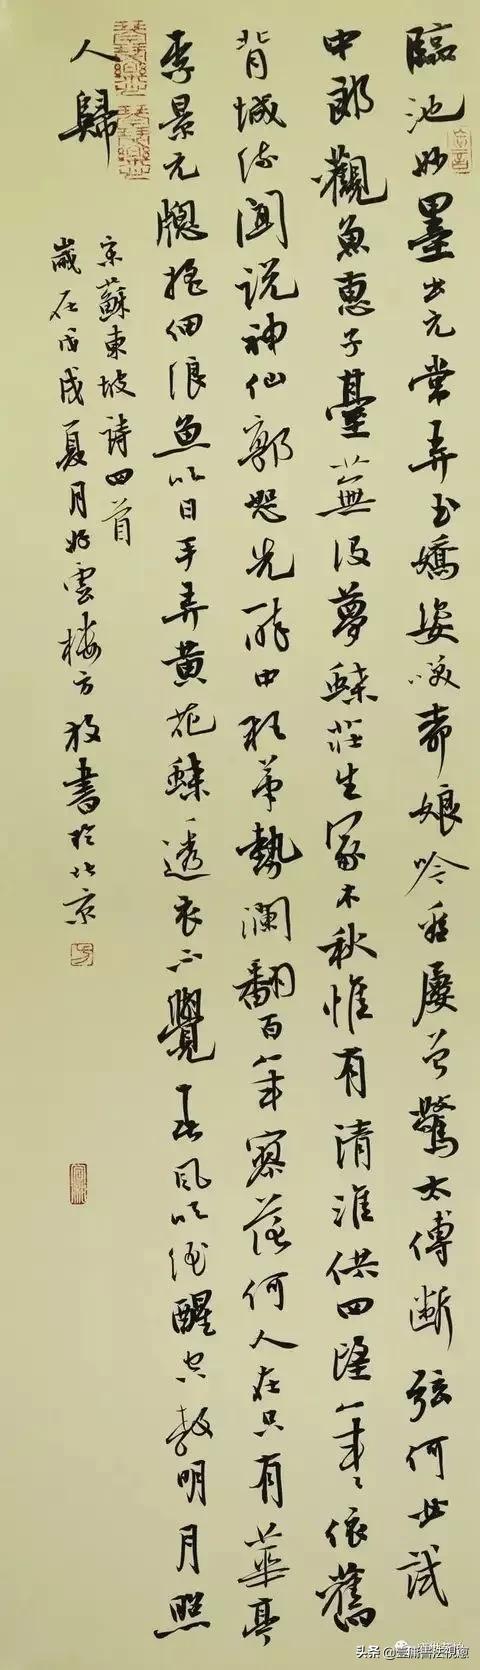 臨池妙墨出元常弄玉嬌姿咲娘吟屢曾驚太傅斷弦何必試
中郎觀魚惠子臺蕪没夢蝶莊生冢木秋惟有清淮供四望年々依舊
背城流聞説神仙郭恕先醉中狂筆勢瀾翻百年寥落何人在只有華亭
李景元牕摇細浪魚吹日手弄黄花蝶透衣不覺春風吹酒醒空教明月照
人歸
蘇東坡詩四首
歲在戊戌夏月好雲樓方放書於北京
头条